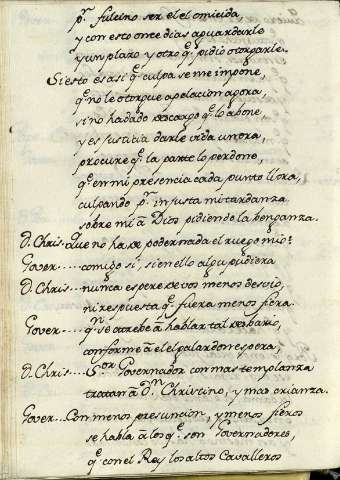 pr. fulcino ser el el omicida
y con esto once dias aguardarle
y un plazo y otro qe. pidio otorgarle.
Si esto es asi qe. culpa se me impone,
qe. no le otorgue apelacion agora,
si no ha dado descargo qe. lo abone
y es justicia darle vida un ora,
procure qe. la parte lo perdone,
qe. en mi presencia cada punto llora,
culpando pr. injusta mi tardanza
sobre mi à Dios pidiendo la benganza.
D. Chris. Que no ha de poder nada el ruego mio?
Gover..... comigo si, si en ello algu pudiera
D. Chris.... nunca espere de vos menos desvio,
ni respuesta qe. fuera menos fiera.
Gover..... qn. se atrebe à hablar tal desbario,
conforme à el el galardon espera.
D. Chris.... Sor. Governador con mas templanza
tratan à Dn. Christino, y mas crianza.
Gover... Con menos presuncion, y menos fieros
se habla à los qe. son Governadores,
qe. con el Rey los altos Cavalleros